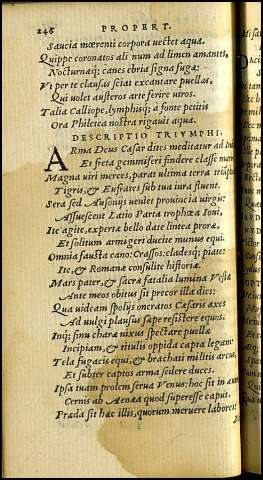 246 PROPERT.
Saucia mœrenti corpora uectet aqua.
Quippe coronatos ali num ad limen amantes,
Nocturnæq; canes ebria signa fugæ:
Vt per te clausas sciat excantare puellas,
Qui uolet austeros arte ferire uiros.
Talia Calliope, lymphisq; a fonte petitis
Ora Philetea nostra rigauit aqua.
DESCRIPTIO TRIVMPHI.
ARma Deus Cæsar dites meditatur ad
Et freta gemmiferi findere classe mar
Magna uiri merces, parat ultima terra
Tigris, & Eufrates sub tua iura fluent.
Sera sed Ausonijs ueniet prouincia uirgis:
Assuescent Latio Parta trophœa Ioui,
Ite agite, expertæ bello date lintea proræ,
Et solitum armigeri ducite munus equi.
Omnia fausta cano: Crassos: cladesq; piate:
Ite, & Romanæ consulite historiæ.
Mars pater, & sacræ fatalia lumina Vestæ
Ante meos obitus sit precor illa dies:
Qua uideam spolijs oneratos Cæsaris axes
Ad uulgi plausus sæpe resistere equos.
Inq; sinu charæ nixus spectare puellæ
Incipiam, & titulis oppida capta legam:
Tela fugacis equi, & brachati militis arcus,
Et subter captos arma sedere duces.
Ipsa tuam prolem serua Venus: hoc sit in
Cernis ab Aenea quod superesse caput.
Præda sit hæc illis, quorum meruere labores: